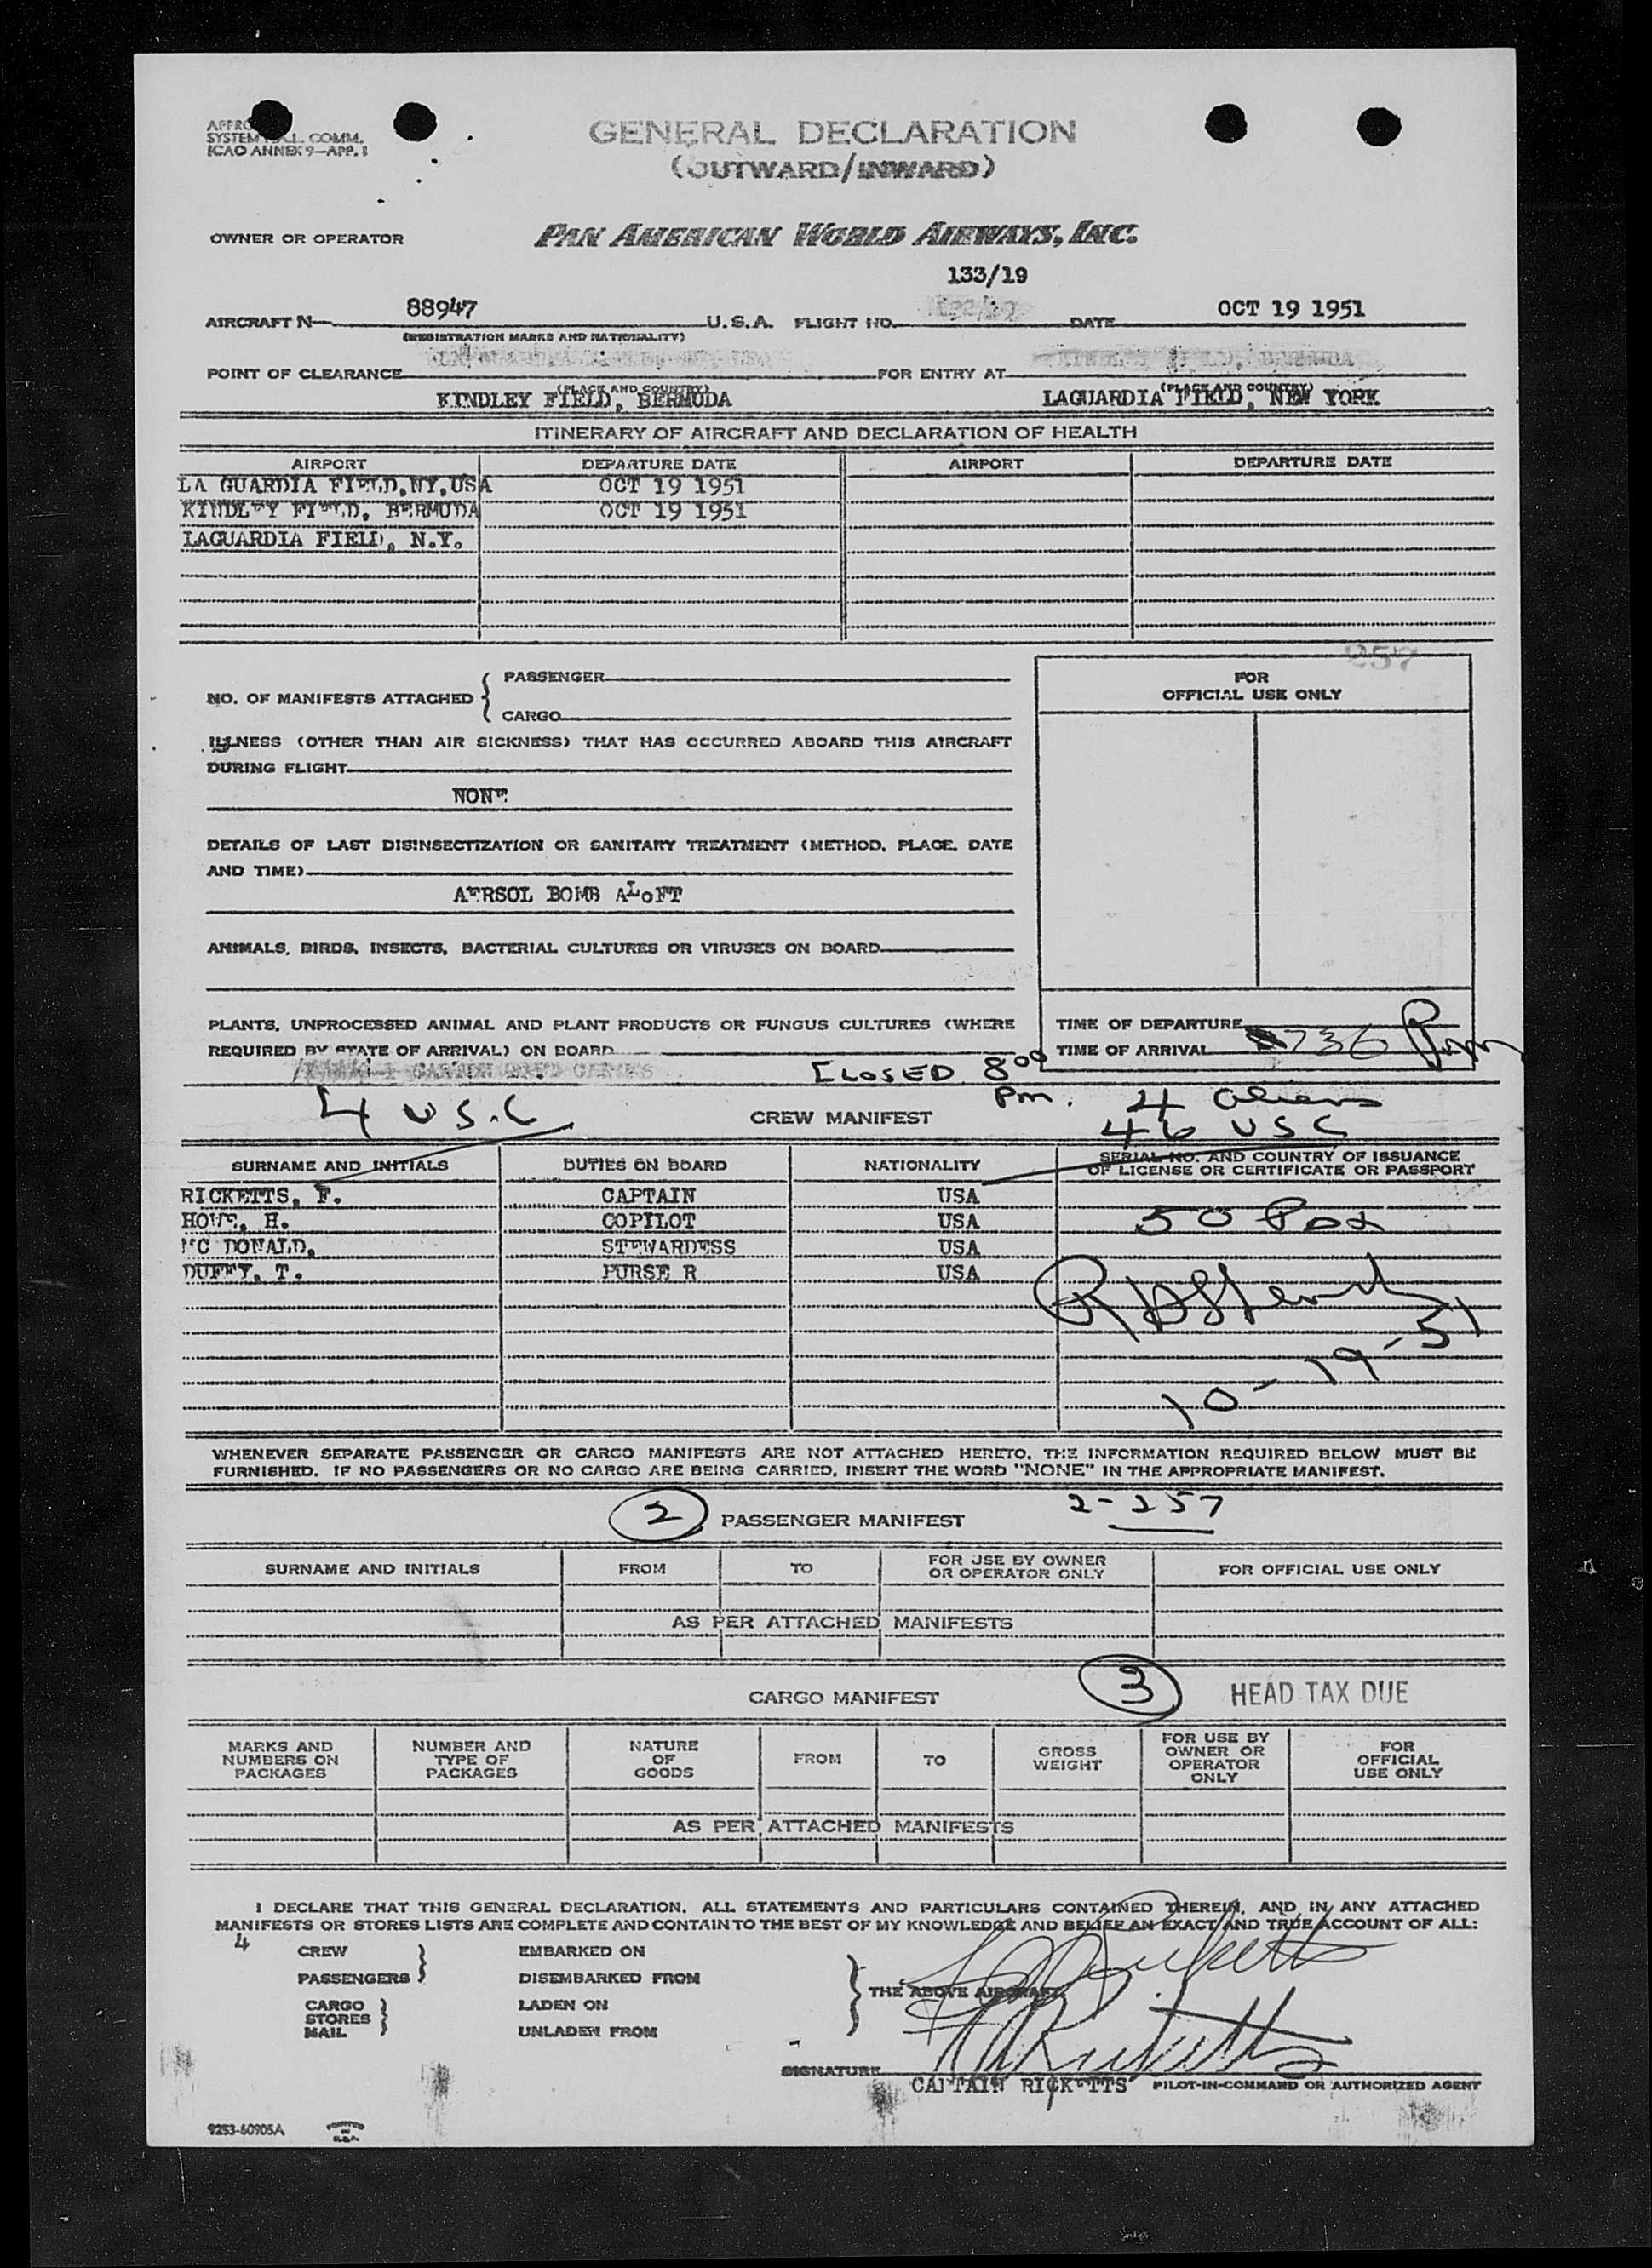 SYSTEM COMM.
ICAO ANNEX 9—APP. I
GENERAL DECLARATION
(OUTWARD/INWARD)
OWNER OR OPERATOR PAN AMERICAN WORLD AIRWAYS, INC.
133/19
AIRCRAFT N 88947 U.S.A. FLIGHT NO. DATE OCT 19 1951
(REGISTRATION MARKS AND NATIONALITY)
POINT OF CLEARANCE FOR ENTRY AT
(PLACE AND COUNTRY) (PLACE AND COUNTRY)
KINDLEY FIELD, BERMUDA LAGUARDIA FIELD, NEW YORK
ITINERARY OF AIRCRAFT AND DECLARATION OF HEALTH
AIRPORT DEPARTURE DATE AIRPORT DEPARTURE DATE
LA GUARDIA FIELD,NY,USA OCT 19 1951
KINDLEY FIELD, BERMUDA OCT 19 1951
LAGUARDIA FIELD, N.Y.
257
NO. OF MANIFESTS ATTACHED { PASSENGER
CARGO
FOR
OFFICIAL USE ONLY
ILLNESS (OTHER THAN AIR SICKNESS) THAT HAS OCCURRED ABOARD THIS AIRCRAFT
DURING FLIGHT
NONE
DETAILS OF LAST DISINSECTIZATION OR SANITARY TREATMENT (METHOD, PLACE, DATE
AND TIME)
AERSOL BOMB ALOFT
ANIMALS, BIRDS, INSECTS, BACTERIAL CULTURES OR VIRUSES ON BOARD
PLANTS, UNPROCESSED ANIMAL AND PLANT PRODUCTS OR FUNGUS CULTURES (WHERE
REQUIRED BY STATE OF ARRIVAL) ON BOARD
TIME OF DEPARTURE
TIME OF ARRIVAL 736 Pm
CLOSED 8 00
Pm.
4 USC CREW MANIFEST 4 aliens
46 USC
SURNAME AND INITIALS DUTIES ON BOARD NATIONALITY SERIAL NO. AND COUNTRY OF ISSUANCE
OF LICENSE OR CERTIFICATE OR PASSPORT
RICKETTS, F. CAPTAIN USA
HOWE, H. COPILOT USA 50 Pax
MC DONALD, STEWARDESS USA
DUFFY, T. PURSE R USA
10-19-51
WHENEVER SEPARATE PASSENGER OR CARGO MANIFESTS ARE NOT ATTACHED HERETO, THE INFORMATION REQUIRED BELOW MUST BE
FURNISHED. IF NO PASSENGERS OR NO CARGO ARE BEING CARRIED, INSERT THE WORD "NONE" IN THE APPROPRIATE MANIFEST.
2 PASSENGER MANIFEST 2-257
SURNAME AND INITIALS FROM TO FOR USE BY OWNER
OR OPERATOR ONLY FOR OFFICIAL USE ONLY
AS PER ATTACHED MANIFESTS
CARGO MANIFEST 3 HEAD TAX DUE
MARKS AND
NUMBERS ON
PACKAGES
NUMBER AND
TYPE OF
PACKAGES
NATURE
OF
GOODS
FROM
TO
GROSS
WEIGHT
FOR USE BY
OWNER OR
OPERATOR
ONLY
FOR
OFFICIAL
USE ONLY
AS PER ATTACHED MANIFESTS
I DECLARE THAT THIS GENERAL DECLARATION, ALL STATEMENTS AND PARTICULARS CONTAINED THEREIN, AND IN ANY ATTACHED
MANIFESTS OR STORES LISTS ARE COMPLETE AND CONTAIN TO THE BEST OF MY KNOWLEDGE AND BELIEF AN EXACT AND TRUE ACCOUNT OF ALL:
4 CREW EMBARKED ON
PASSENGERS DISEMBARKED FROM
THE ABOVE AIRCRAFT
CARGO LADEN ON
STORES
MAIL UNLADEN FROM
Ricketts
Ricketts
SIGNATURE
CAPTAIN RICKETTS PILOT-IN-COMMAND OR AUTHORIZED AGENT
9253-60905A PRINTED
IN
U.S.A.